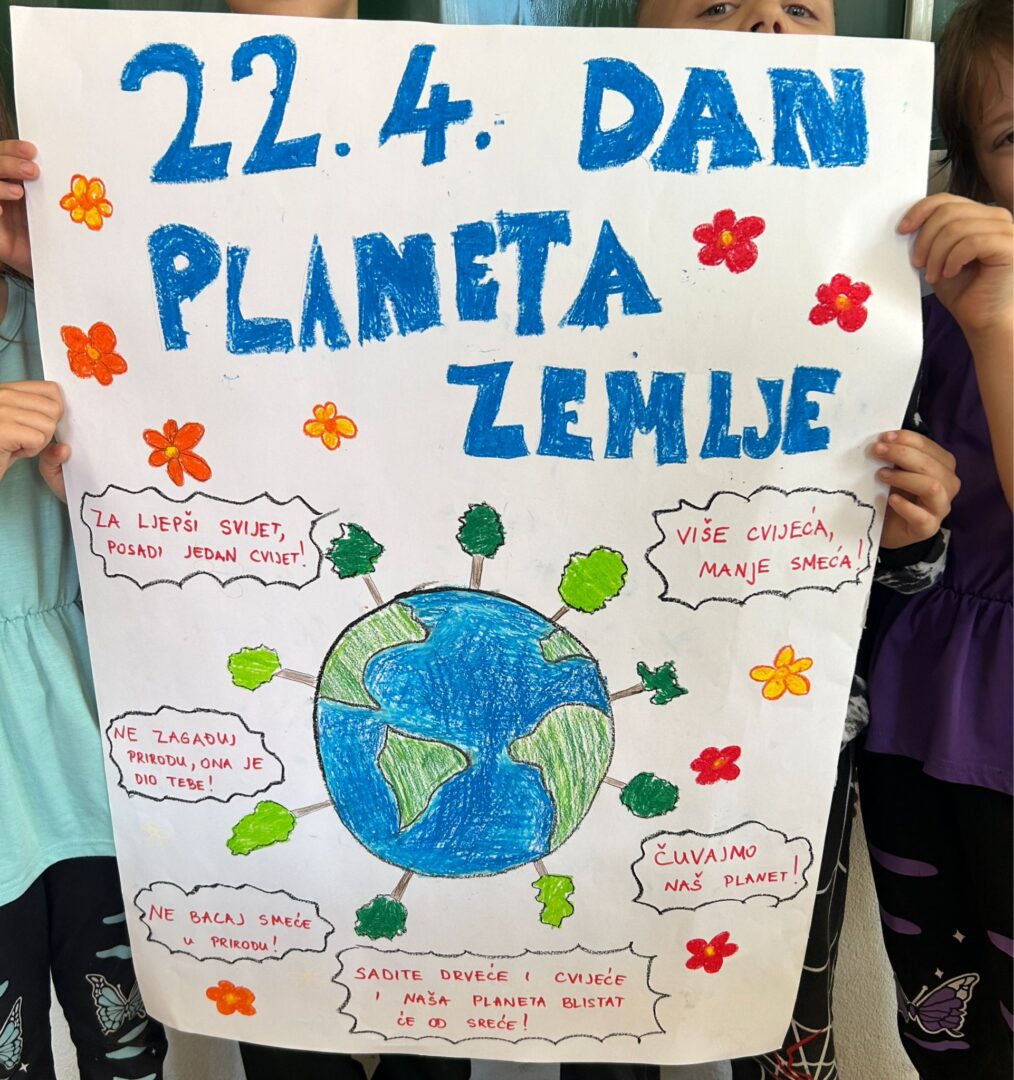 22.4. DAN
PLANETA
ZEMLJE
ZA LJEPŠI SVIJET,
POSADI JEDAN CVIJET!
VIŠE CVIJEĆA,
MANJE SMEĆA!
NE ZAGAĐUJ
PRIRODU, ONA JE
DIO TEBE!
ČUVAJMO
NAŠ PLANET!
NE BACAJ SMEĆE
U PRIRODU!
SADITE DRVEĆE I CVIJEĆE
I NAŠA PLANETA BLISTAT
ĆE OD SREĆE!